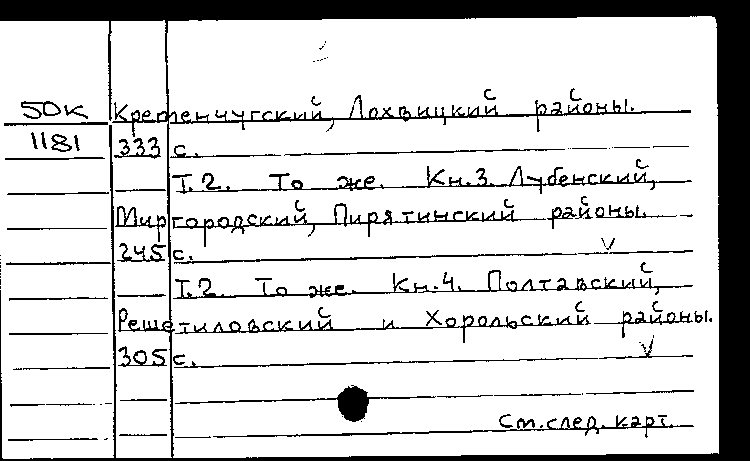 50К Кременчугский, Лохвицкий районы.
1181 333 с.
Т.2. То же. Кн.3. Лубенский,
Миргородский, Пирятинский районы.
245 с. V
Т.2. То же. Кн.4. Полтавский,
Решетиловский и Хорольский районы.
305 с. V
См. след. карт.